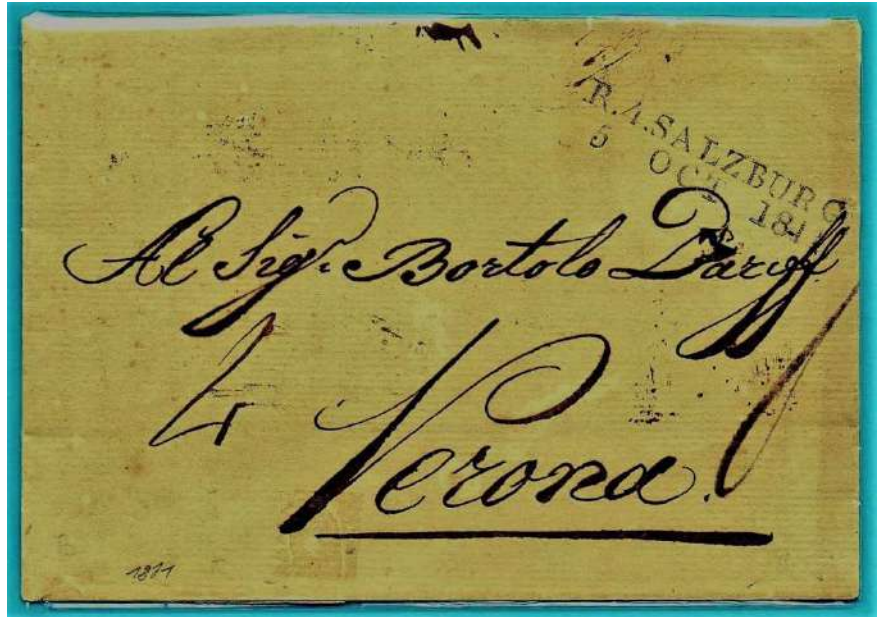 R. 4. SALZBURG
5 OCT 181
Al Sigr. Bortolo
4
Verona.
1811